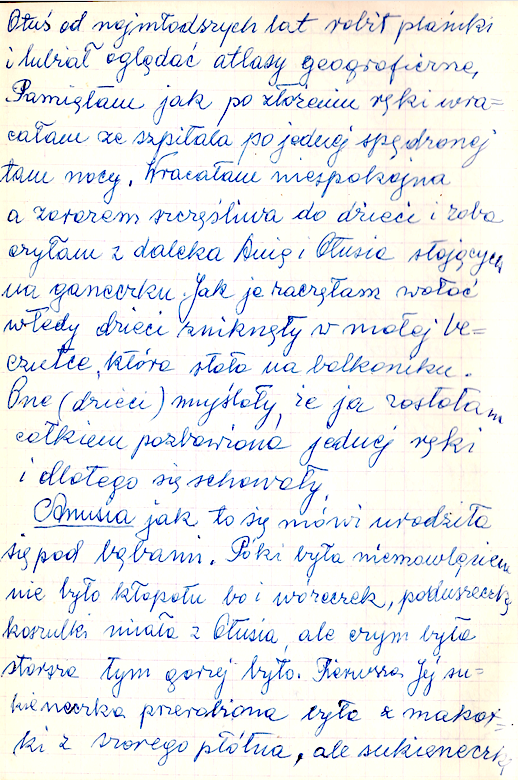 Otuś od najmłodszych lat robił planiki
i lubiał oglądać atlasy geograficzne,
Pamiętam jak po złożeniu ręki wra=
całam ze szpitala po jednej spędzonej
tam nocy. Wracałam niespokojna
a zarazem szczęśliwa do dzieci i zoba
czyłam z daleka Anię i Otusia stojących
na ganeczku. Jak ja zaczęłam wołać
wtedy dzieci zniknęły w małej be=
czułce, która stała na balkoniku.
One (dzieci) myślały, że ja zostałam
całkiem pozbawiona jednej ręki
i dlatego się schowały,
Anusia jak to się mówi urodziła
się pod bębami. Póki była niemowlęciem
nie było kłopotu bo i woreczek, poduszeczkę
koszulki miała z Otusia, ale czym była
starsza tym gorzej było. Pierwsza Jej su=
kieneczka przerobiona była z
ki z szarego płótna, ale sukieneczki